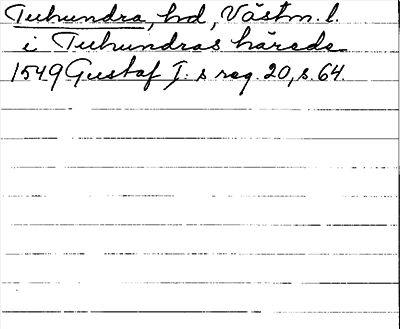 Tuhundra, hd, Västm. l.
i Tuhundras härade
1549 Gustaf I:s reg. 20, s. 64.